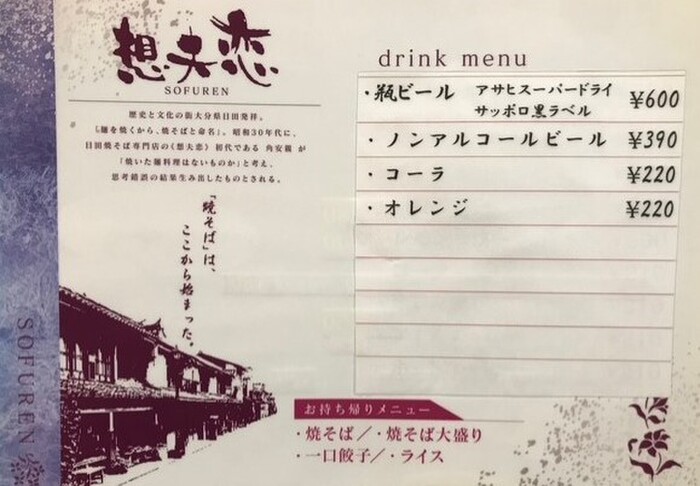 想夫恋
SOFUREN
歴史と文化の街大分県日田発祥。
『麺を焼くから、焼そばと命名』。昭和30年代に、
日田焼そば専門店の《想夫恋》初代である 角安親 が
「焼いた麺料理はないものか」と考え、
思考錯誤の結果生み出したものとされる。
「焼そば」は、
ここから始まった。
SOFUREN
drink menu
・瓶ビール アサヒスーパードライ ¥600
サッポロ黒ラベル
・ノンアルコールビール ¥390
・コーラ ¥220
・オレンジ ¥220
お持ち帰りメニュー
・焼そば／・焼そば大盛り
・一口餃子／・ライス